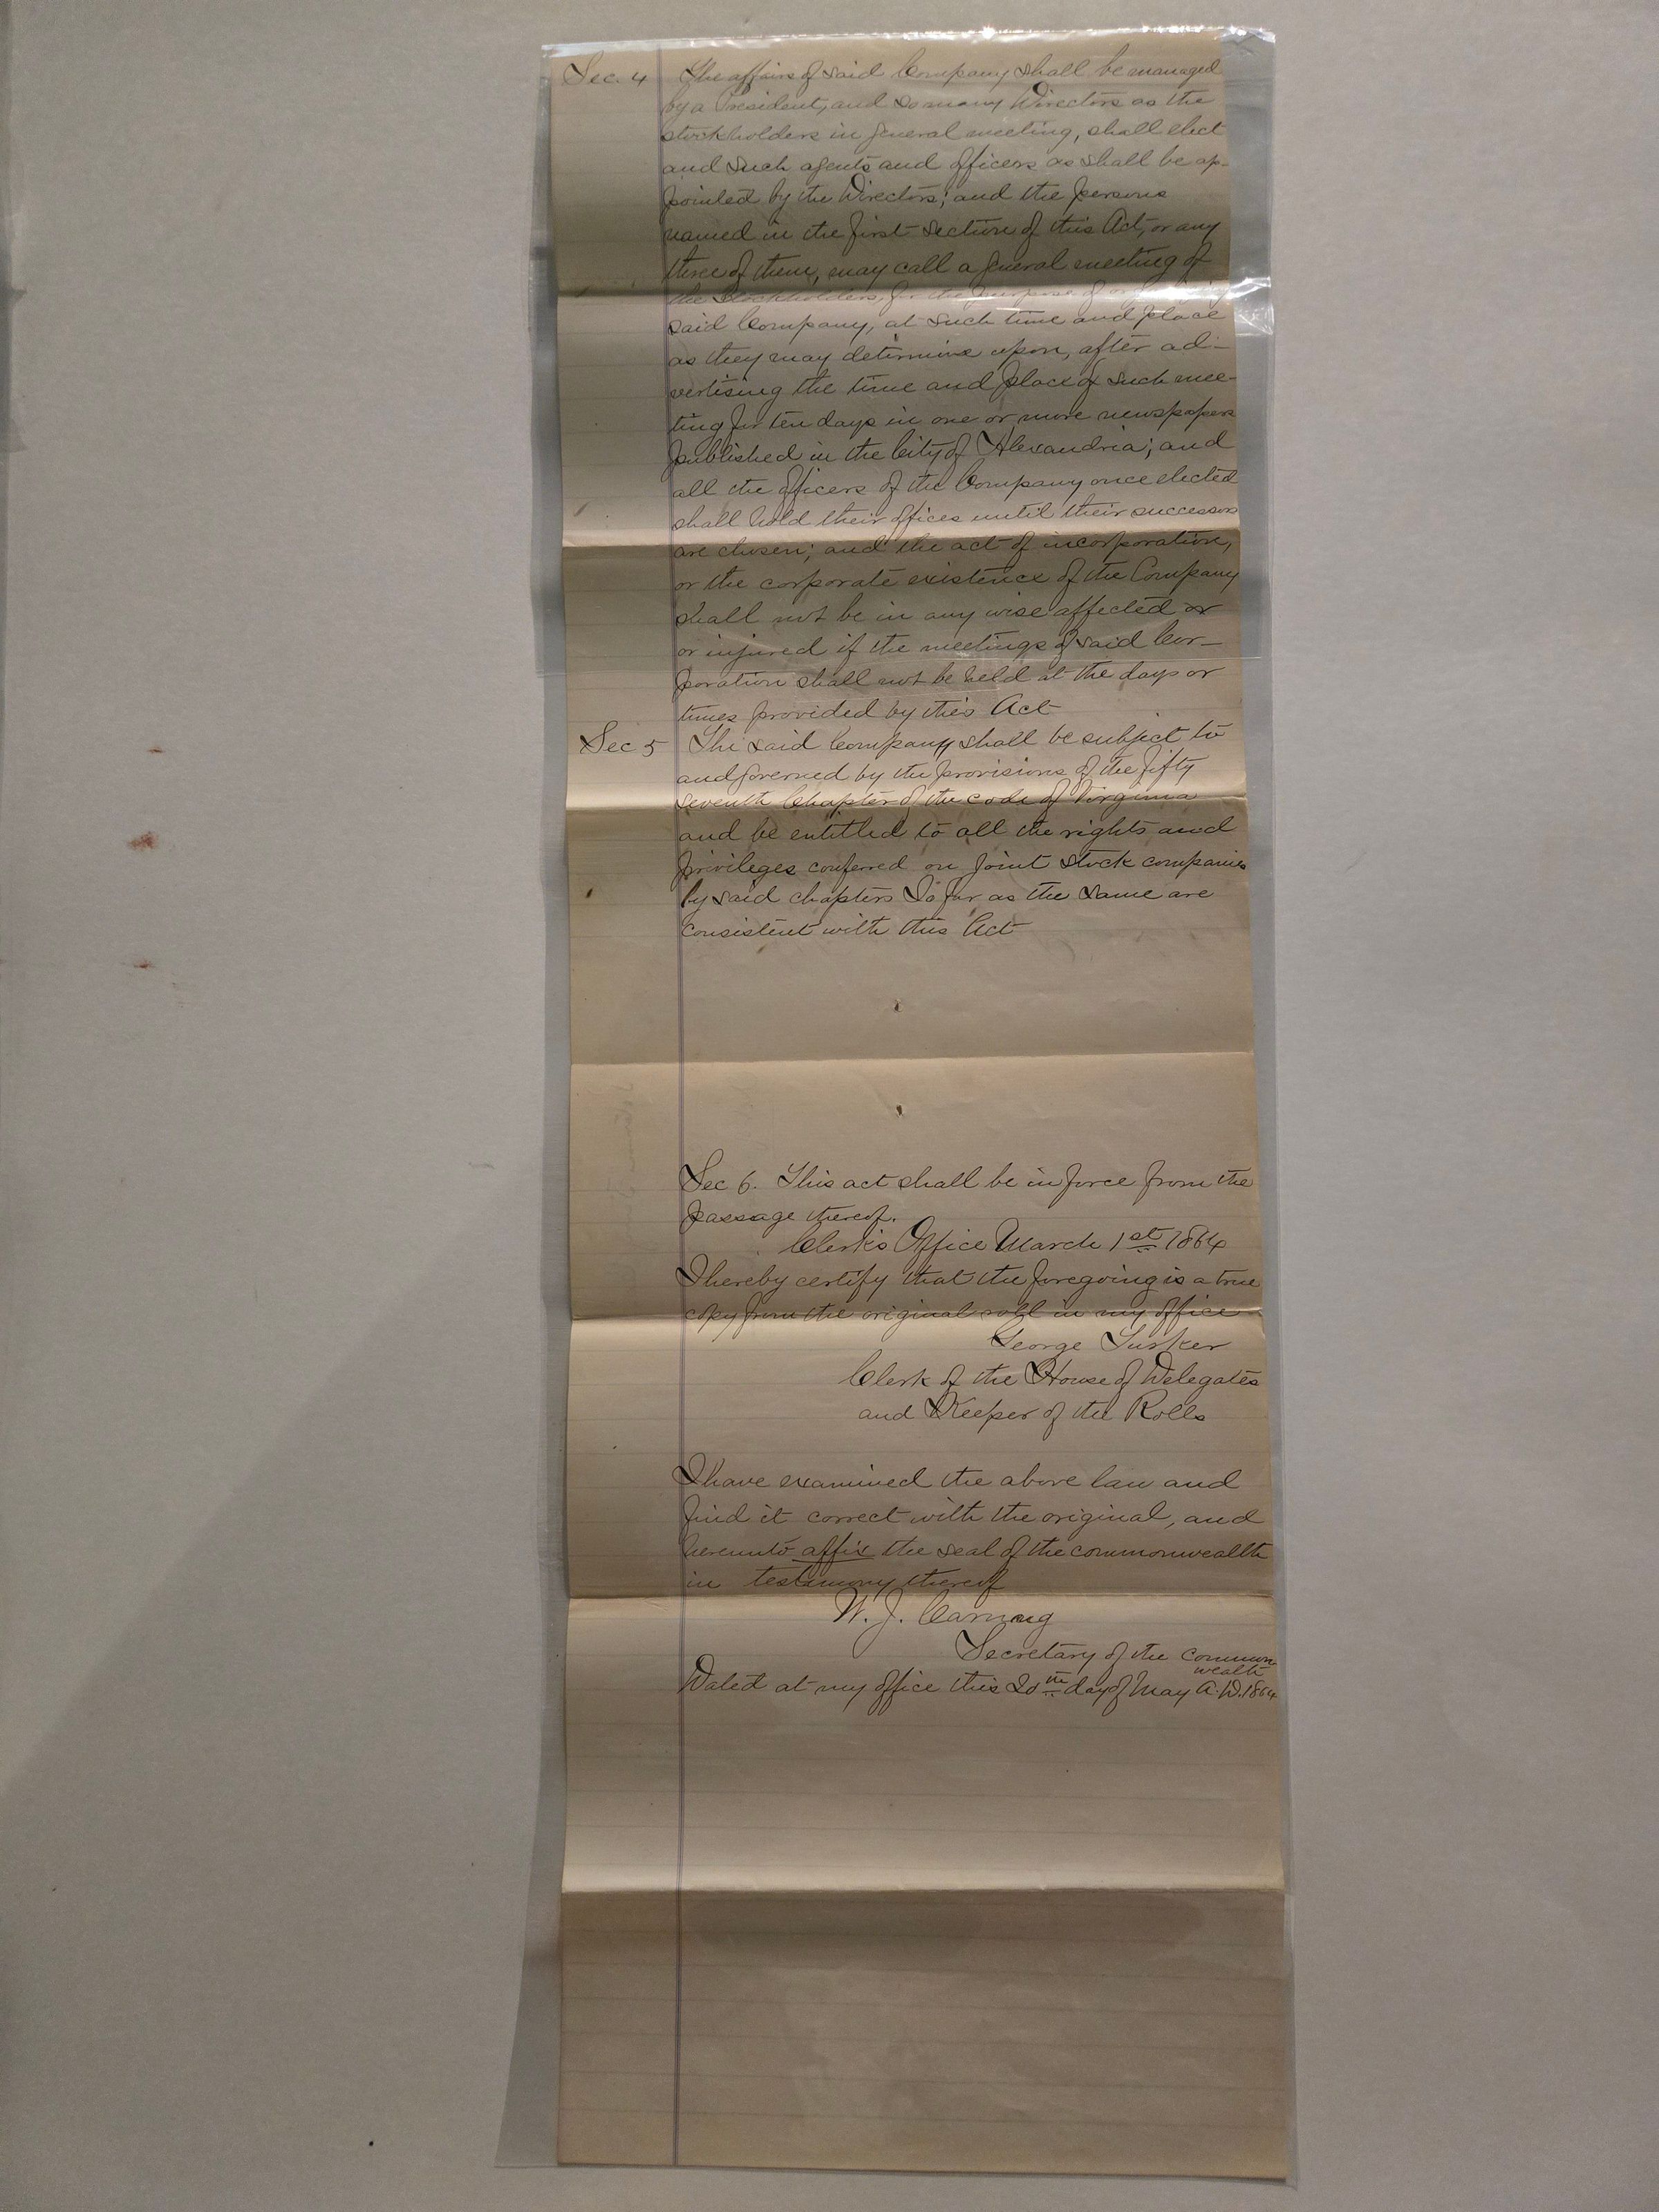 Sec. 4 The affairs of said Company shall be managed
by a President, and so many Directors as the
stockholders in general meeting, shall elect
and such agents and officers as shall be ap-
pointed by the Directors; and the persons
named in the first section of this Act, or any
three of them, may call a general meeting of
the stockholders, for the purpose of organizing
said Company, at such time and place
as they may determine upon, after ad-
vertising the time and place of such mee-
ting for ten days in one or more newspapers
published in the City of Alexandria; and
all the officers of the Company once elected
shall hold their offices until their successors
are chosen; and the act of incorporation,
or the corporate existence of the Company
shall not be in any wise affected or
or injured if the meetings of said Cor-
poration shall not be held at the days or
times provided by this Act
Sec 5 The said Company shall be subject to
and governed by the provisions of the fifty
seventh Chapter of the code of Virginia
and be entitled to all the rights and
privileges conferred on joint stock companies
by said chapters So far as the same are
consistent with this Act
Sec 6. This act shall be in force from the
passage thereof.
Clerk's Office March 1st 1864
I hereby certify that the foregoing is a true
copy from the original roll in my office
George Tucker
Clerk of the House of Delegates
and Keeper of the Rolls
I have examined the above law and
find it correct with the original, and
hereunto affix the seal of the commonwealth
in testimony thereof
W. J.
Secretary of the common
wealth
Dated at my office this 20th day of May A.D. 1864